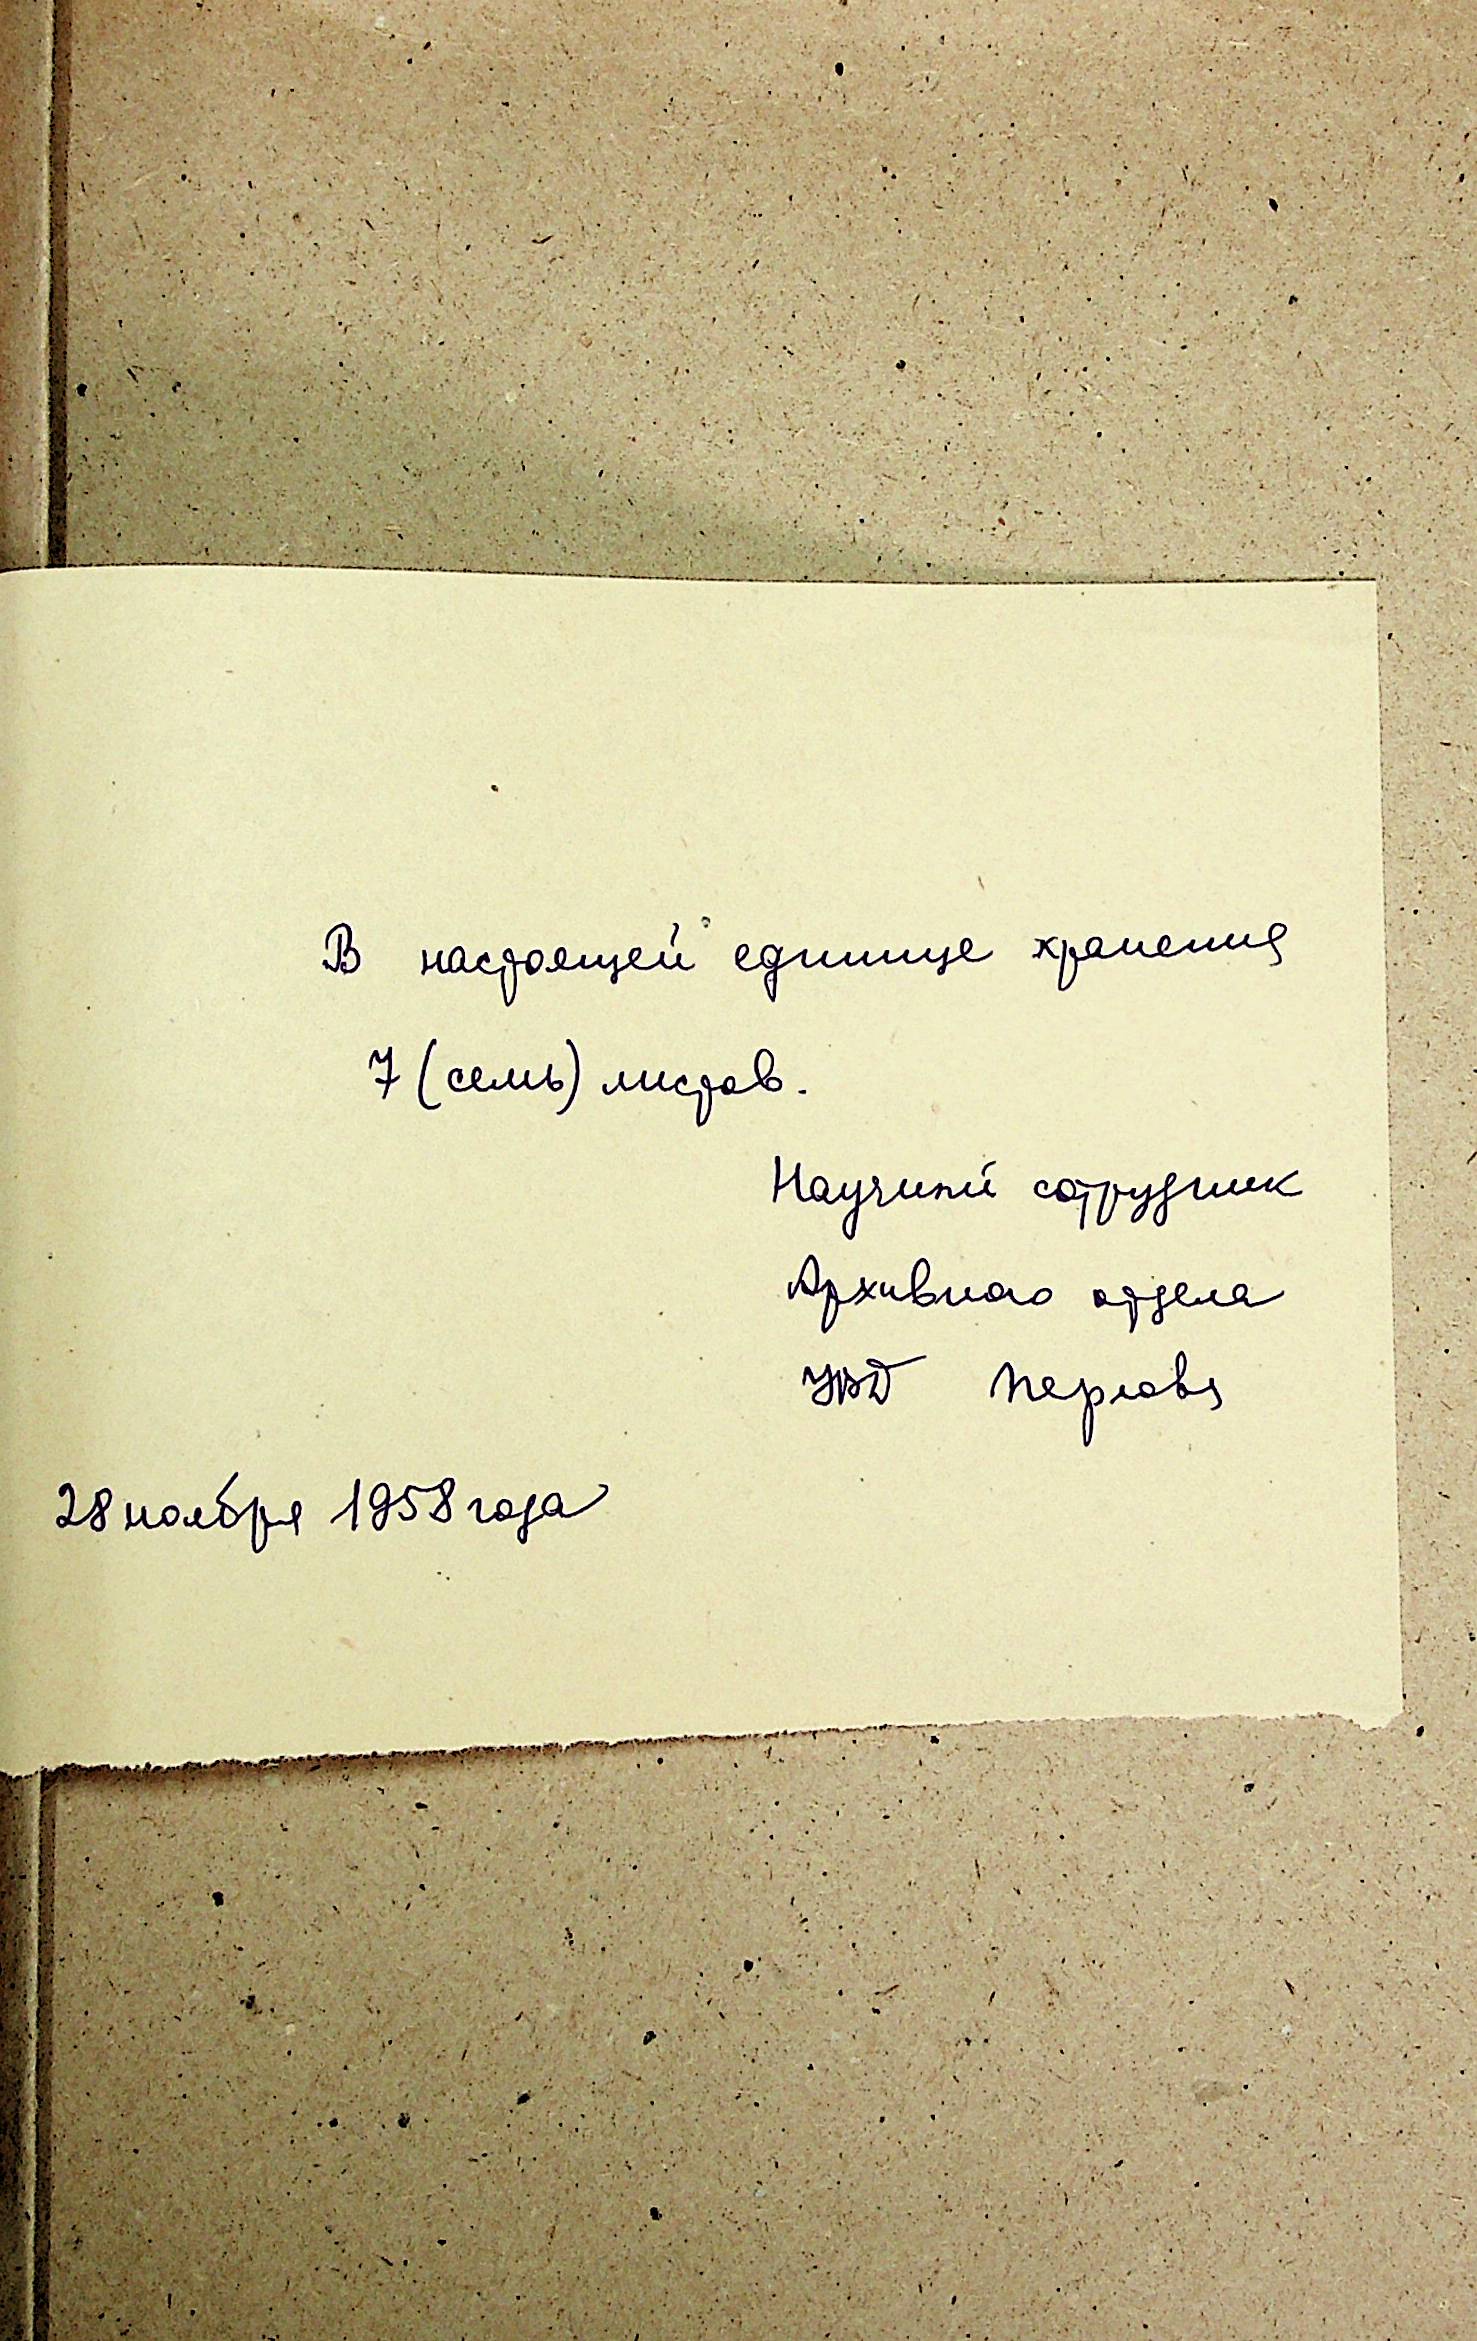 В настоящей единице хранения
7 (семь) листов.
Научный сотрудник
Архивного отдела
УВД
28 ноября 1958 года